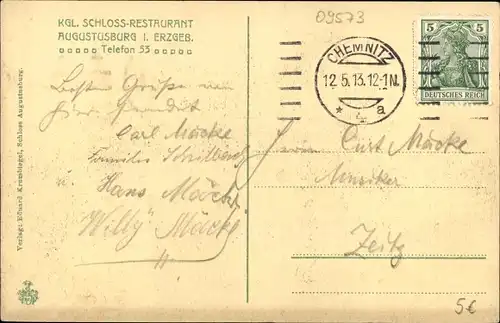 09573
KGL. SCHLOSS-RESTAURANT
AUGUSTUSBURG I. ERZGEB.
Telefon 53
5 5
DEUTSCHES REICH
CHEMNITZ
12.5.13.12-1N.
* 4 a
Besten Gruß von
hier sendet
Carl Mäcke
Familie
u. Hans Mäcke
"Willy" Mäcke
Herrn Curt Mäcke
Musiker
Zeitz
Verlag: Eduard Krembsiegel, Schloss Augustusburg.
5€